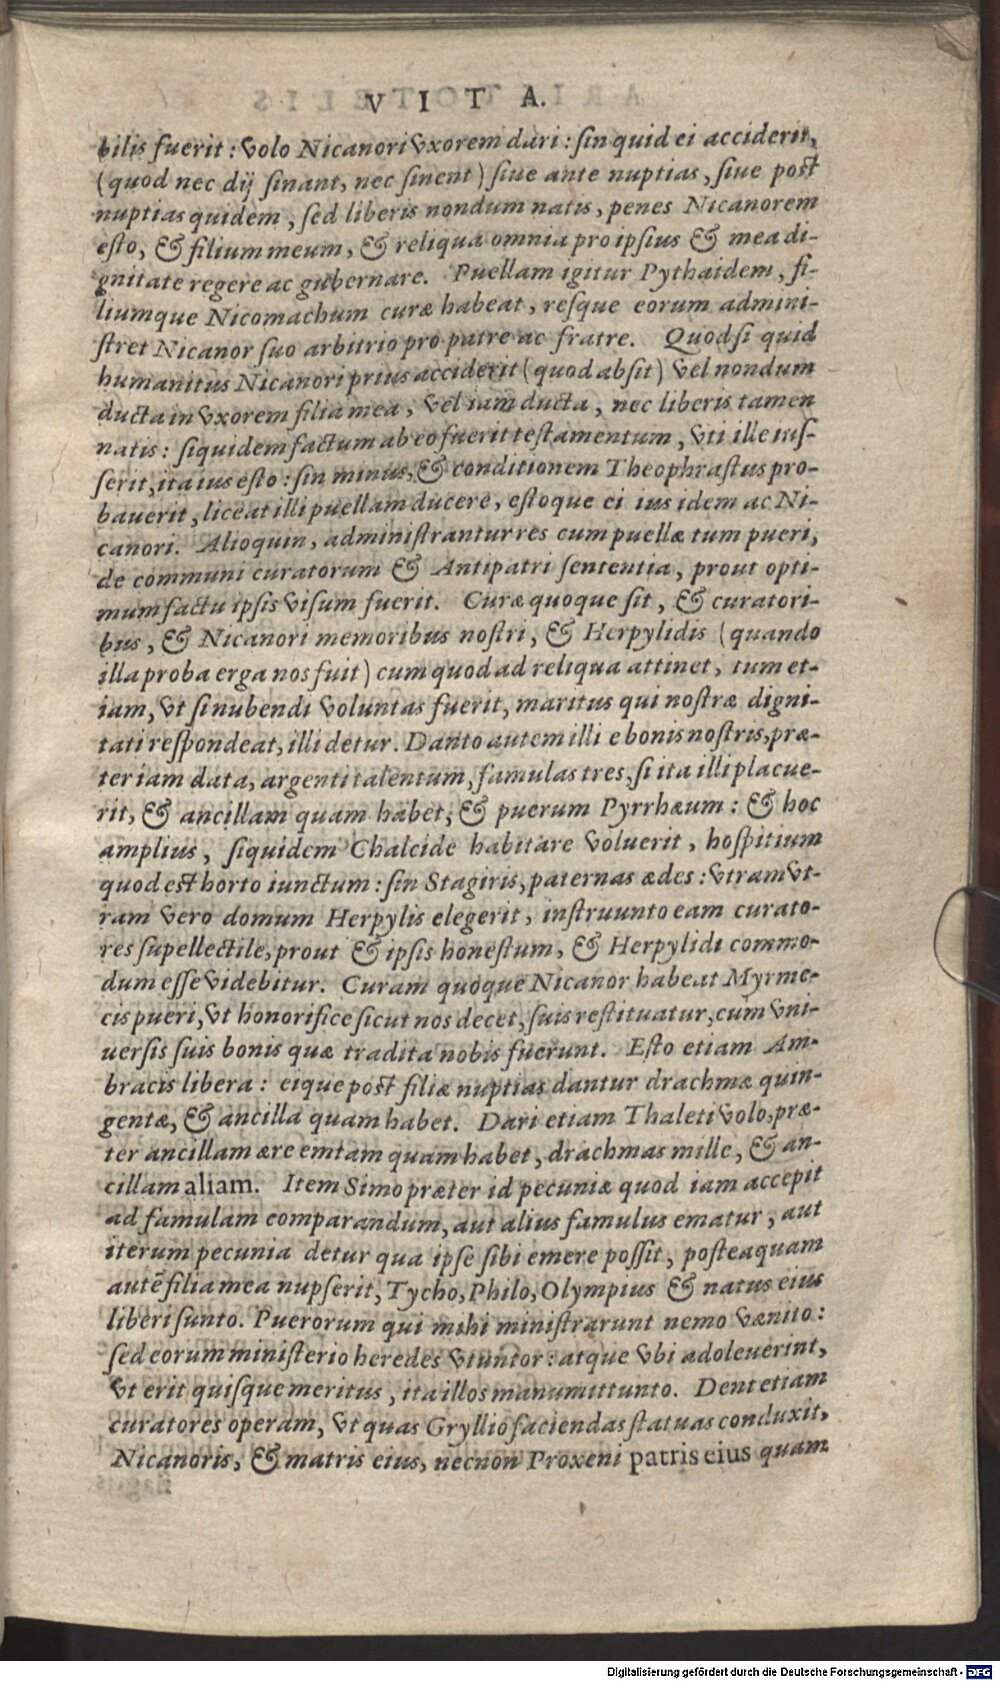 VITA.
bilis fuerit: volo Nicanori vxorem dari: sin quid ei acciderit,
(quod nec dij sinant, nec sinent) siue ante nuptias, siue post
nuptias quidem, sed liberis nondum natis, penes Nicanorem
esto, & filium meum, & reliqua omnia pro ipsius & mea di-
gnitate regere ac gubernare. Puellam igitur Pythaidem, fi-
liumque Nicomachum curæ habeat, resque eorum admini-
stret Nicanor suo arbitrio pro patre ac fratre. Quod si quid
humanitus Nicanori prius acciderit (quod absit) vel nondum
ducta in vxorem filia mea, vel iam ducta, nec liberis tamen
natis: siquidem factum ab eo fuerit testamentum, vti ille ius-
serit, ita ius esto: sin minus, & conditionem Theophrastus pro-
bauerit, liceat illi puellam ducere, estoque ei ius idem ac Ni-
canori. Alioquin, administrantur res cum puellæ tum pueri,
de communi curatorum & Antipatri sententia, prout opti-
mum factu ipsis visum fuerit. Curæ quoque sit, & curatori-
bus, & Nicanori memoribus nostri, & Herpylidis (quando
illa proba erga nos fuit) cum quod ad reliqua attinet, tum et-
iam, vt si nubendi voluntas fuerit, maritus qui nostræ digni-
tati respondeat, illi detur. Danto autem illi e bonis nostris, præ-
ter iam data, argenti talentum, famulas tres, si ita illi placue-
rit, & ancillam quam habet, & puerum Pyrrhæum: & hoc
amplius, siquidem Chalcide habitare voluerit, hospitium
quod est horto iunctum: sin Stagiris, paternas ædes: vtram vt-
ram vero domum Herpylis elegerit, instruunto eam curato-
res supellectile, prout & ipsis honestum, & Herpylidi commo-
dum esse videbitur. Curam quoque Nicanor habeat Myrme-
cis pueri, vt honorifice sicut nos decet, suis restituatur, cum vni-
uersis suis bonis quæ tradita nobis fuerunt. Esto etiam Am-
bracis libera: eique post filiæ nuptias dantur drachmæ quin-
gentæ, & ancilla quam habet. Dari etiam Thaleti volo, præ-
ter ancillam ære emtam quam habet, drachmas mille, & an-
cillam aliam. Item Simo præter id pecuniæ quod iam accepit
ad famulam comparandum, aut alius famulus ematur, aut
iterum pecunia detur qua ipse sibi emere possit, posteaquam
autē filia mea nupserit, Tycho, Philo, Olympius & natus eius
liberi sunto. Puerorum qui mihi ministrarunt nemo vænito:
sed eorum ministerio heredes vtuntor: atque vbi adoleuerint,
vt erit quisque meritus, ita illos manumittunto. Dent etiam
curatores operam, vt quas Gryllio faciendas statuas conduxit,
Nicanoris, & matris eius, necnon Proxeni patris eius quam
Digitalisierung gefördert durch die Deutsche Forschungsgemeinschaft - DFG